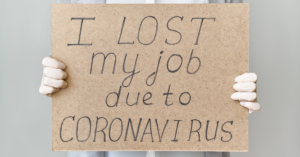 I LOST
my job
due to
CORONAVIRUS